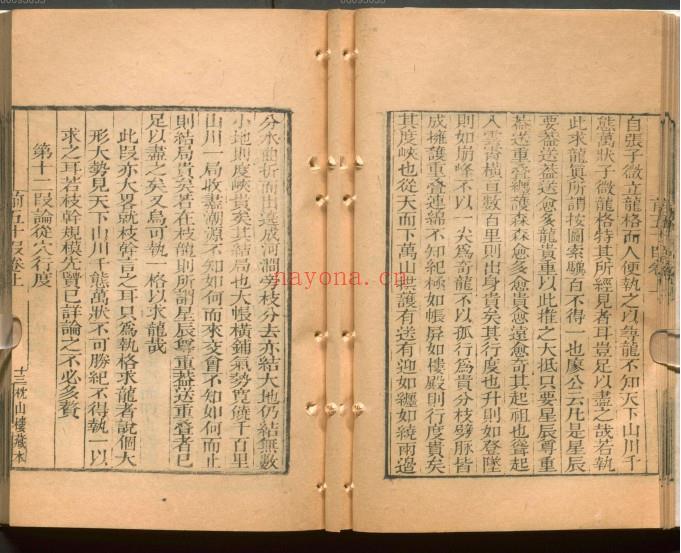 自張子微立龍格而人便執之以尋龍不知天下山川千
態萬狀子微龍格特其所經見者耳豈足以盡之哉若執
此求龍眞所謂按圖索驥百不得一也廖公云凡是星辰
要葢送葢送愈多龍貴重以此推之大抵只要星辰尊重
葢送重疊纏護森森愈多愈貴愈遠愈奇其起祖也聳起
入雲霄橫亘數百里則出身貴矣其行度也升則如登墜
則如崩峰不以一尖爲奇龍不以孤行爲貴分枝劈脉皆
成擁護重疊連綿不知紀極如帳屏如樓殿則行度貴矣
其度峽也從天而下萬山拱護有送有迎如纏如繞兩邉
分水曲折而出遶成河澗旁枝分去亦結大地仍結無數
小地則度峽貴矣其結局也大帳橫鋪氣勢寛饒千百里
山川一局收盡潮源不知如何而來交會不知如何而止
則結局貴矣若在枝龍則所謂星辰尊重葢送重疊者已
足以盡之矣又烏可執一格以求龍哉
此段亦大畧就枝幹言之耳只爲執格求龍者說個大
形大勢見天下山川千態萬狀不可勝紀不得執一以
求之耳若枝幹規模先賢已詳論之不必多贅
第十二段論從穴行度
前五十段卷上
十三枕山樓藏本
nayona.cn